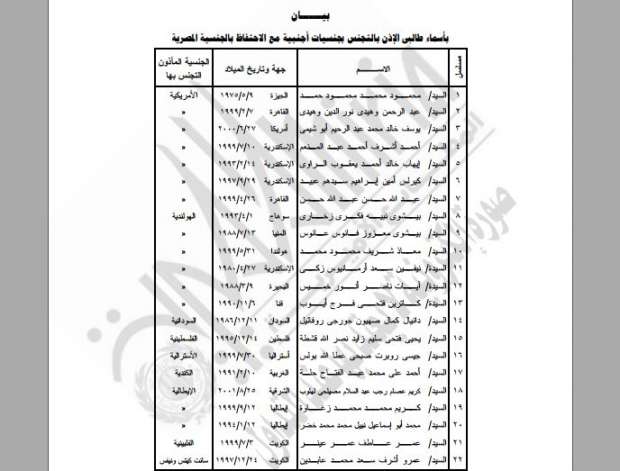 بيـــان
بأسماء طالبى الإذن بالتجنس بجنسيات أجنبية مع الاحتفاظ بالجنسية المصرية
مسلسل الاســـم جهة وتاريخ الميلاد الجنسية المأذون التجنس بها
١ السيد/ محمود محمد محمود حمد الجيزة ١٩٧٥/٥/٩ الأمريكية
٢ السيد/ عبد الرحمن وهيدى نور الدين وهيدى القاهرة ١٩٩٩/٢/٧ »
٣ السيد/ يوسف خالد محمد عبد الرحيم أبو شيمى أمريكا ٢٠٠٠/٦/٢٧ »
٤ السيد/ أحمد أشرف أحمد عبد المنعم الإسكندرية ١٩٩٩/٧/١٠ »
٥ السيد/ إيهاب خالد أحمد يعقوب الراوى الإسكندرية ١٩٩٣/٢/١٤ »
٦ السيد/ كيرلس أمين إبراهيم سيدهم عبيد الإسكندرية ١٩٩٧/٩/٢٩ »
٧ السيد/ عبد الله حسن عبد الله حسن القاهرة ١٩٩٩/٤/٢٦ »
٨ السيد/ بيشوى نبيه فكرى زخارى سوهاج ١٩٩٣/٤/١ الهولندية
٩ السيد/ بيشوى معزوز فانوس عانوس المنيا ١٩٨٨/٧/١٣ »
١٠ السيد/ معاذ شريف محمود محمد هولندا ١٩٩٩/٥/٣١ »
١١ السيدة/ نيفين سعد أرمانيوس زكى الإسكندرية ١٩٨٠/٤/٢٧ »
١٢ السيدة/ ناصر أنور خميس البحيرة ١٩٨٨/٣/٩ »
١٣ السيدة/ كاترين فتحى فرج أيوب قنا ١٩٩٠/١١/٦ »
١٤ السيد/ دانيال كمال صهيون جورجى روفائيل السودان ١٩٨٦/١٢/١١ السودانية
١٥ السيد/ يحيى فتحى سليم زايد نصر الله قشطة فلسطين ١٩٩٥/١٢/١٤ الفلسطينية
١٦ السيد/ جيسى روبرت صبحى عطا الله بولس أستراليا ١٩٩٩/٧/٣٠ الأسترالية
١٧ السيد/ أحمد على محمد عبد الفتاح حلة الغربية ١٩٩١/٢/١٠ الكندية
١٨ السيد/ كريم عصام رجب عبد السلام مصيلحى الشرقية ٢٠٠١/٨/٢٥ الإيطالية
١٩ السيد/ كريم محمد محمد زغاوة إيطاليا ١٩٩٩/٩/١٢ »
٢٠ السيد/ محمد أبو إسماعيل نبيل محمد محمد خضر إيطاليا ١٩٩٤/١/١٢ »
٢١ السيد/ عمر عاطف عمر عينر الكويت ١٩٩٩/٧/٣ الفلبينية
٢٢ السيد/ عمرو أشرف سعد محمد عابدين الكويت ١٩٩٧/١٢/٢٤ سانت كيتس ونيفس